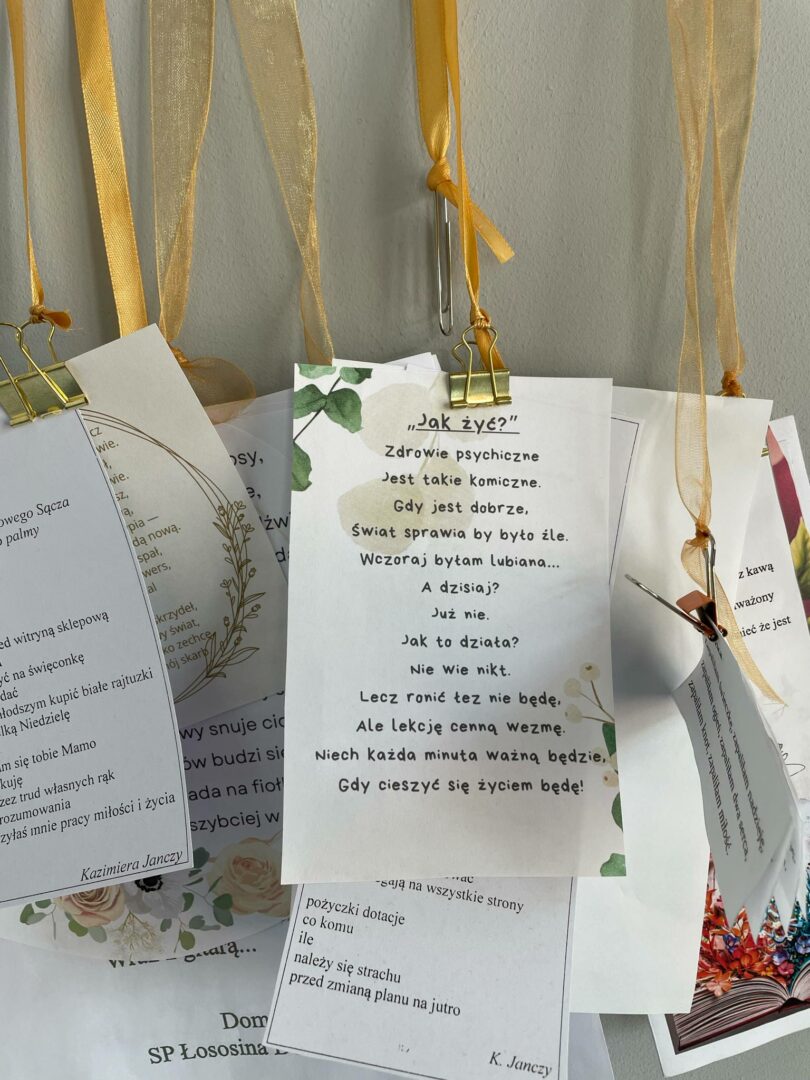 „Jak żyć?”
Zdrowie psychiczne
Jest takie komiczne.
Gdy jest dobrze,
Świat sprawia by było źle.
Wczoraj byłam lubiana...
A dzisiaj?
Już nie.
Jak to działa?
Nie wie nikt.
Lecz ronić łez nie będę,
Ale lekcję cenną wezmę.
Niech każda minuta ważną będzie,
Gdy cieszyć się życiem będę!
owego Sącza
palmy
ed witryną sklepową
yć na święconkę
dać
młodszym kupić białe rajtuzki
lką Niedzielę
m się tobie Mamo
kuję
zez trud własnych rąk
rozumowania
zyłaś mnie pracy miłości i życia
Kazimiera Janczy
cz
wie.
ł,
wie.
sz,
ą,
pia —
dą nową.
spał,
wers,
al
skrzydeł,
y świat,
ko zechce
mój skarb
osy,
e,
dźwi
wy snuje cic
ów budzi się
ada na fioł
szybciej w
gitarą...
Dom
SP Łososina D
gają na wszystkie strony
pożyczki dotacje
co komu
ile
należy się strachu
przed zmianą planu na jutro
K. Janczy
zapaliłam nadzieję,
zapaliłam ogień, zapaliłam dwa serca,
zapaliłam knot, zapaliłam miłość.
z kawą
ważony
ieć że jest